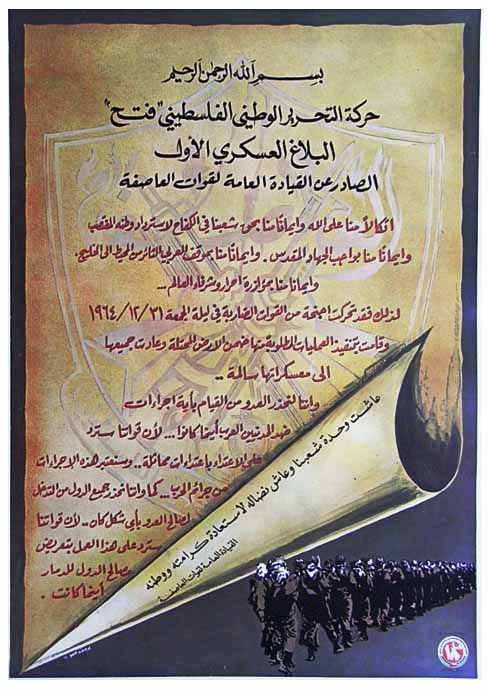 بسم الله الرحمن الرحيم
حركة التحرير الوطني الفلسطيني "فتح"
البلاغ العسكري الأول
الصادر عن القيادة العامة لقوات العاصفة
اتكالاً منا على الله وايمانا منا بحق شعبنا في الكفاح لاسترداد وطنه المغتصب
وايمانا منا بواجب الجهاد المقدس . وايمانا منا بموقف العربي الثائر من المحيط الى الخليج .
وايمانا منا بمؤازرة احرار وشرفاء العالم ...
لذلك فقد تحركت اجنحة من القوات الضاربة في ليلة الجمعة ٣١/١٢/١٩٦٤
وقامت بتنفيذ العمليات المطلوبة منها ضمن الارض المحتلة وعادت جميعها
الى معسكراتها سالمة ..
واننا لنحذر العدو من القيام بأية اجراءات
ضد المدنيين العرب أينما كانوا ... لأن قواتنا سترد
على الاعتداء باعتداءات مماثلة .. وستعتبر هذه الاجراءات
من جرائم الحرب ... كما واننا نحذر جميع الدول من التدخل
لصالح العدو بأي شكل كان .. لأن قواتنا
سترد على هذا العمل بتعريض
مصالح الدول للدمار
أينما كانت .
عاشت وحدة شعبنا وعاش نضاله لاستعادة كرامته ووطنه
القيادة العامة لقوات العاصفة